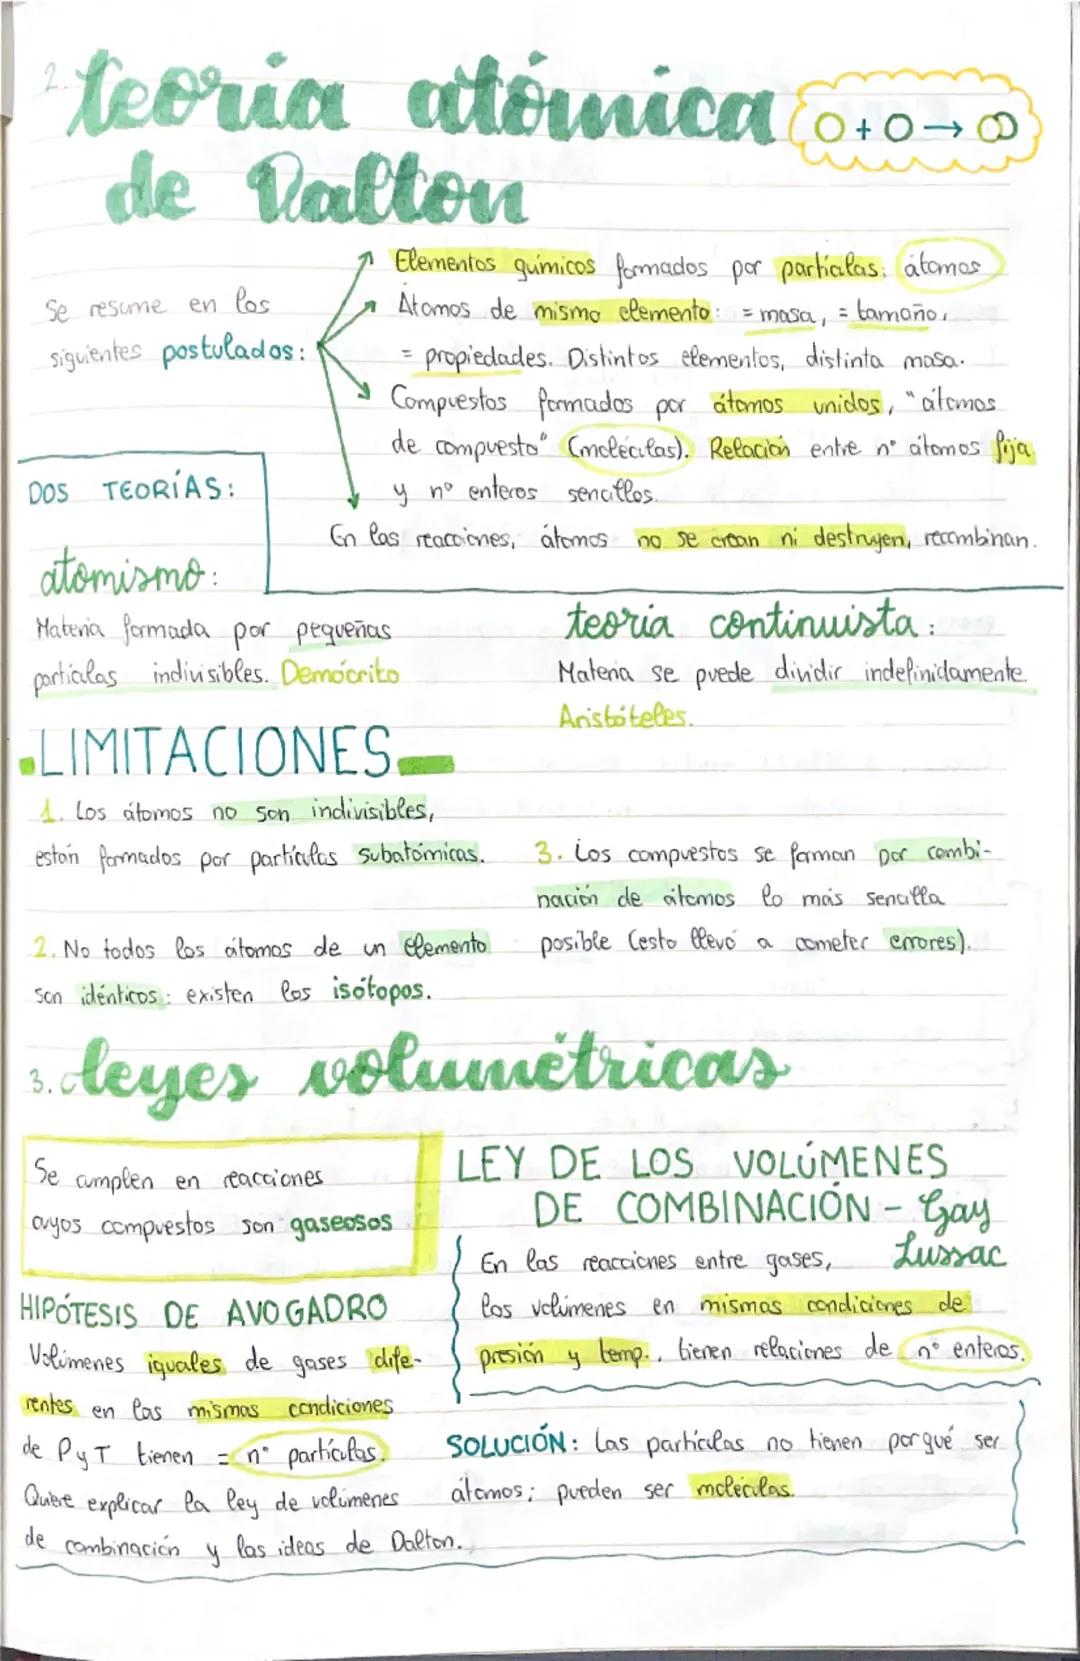 2. teoría atómica
de Dalton
O + O → OO
Se resume en los
siguientes postulados:
Elementos químicos formados por partículas: átomos
Átomos de mismo elemento: = masa, = tamaño,
= propiedades. Distintos elementos, distinta masa.
Compuestos formados por átomos unidos, "átomos
de compuesto" (moléculas). Relación entre nº átomos fija
y nº enteros sencillos.
En las reacciones, átomos no se crean ni destruyen, recombinan.
DOS TEORÍAS:
atomismo:
Materia formada por pequeñas
partículas indivisibles. Demócrito
teoría continuista:
Materia se puede dividir indefinidamente.
Aristóteles.
LIMITACIONES
1. Los átomos no son indivisibles,
están formados por partículas subatómicas.
2. No todos los átomos de un elemento
son idénticos: existen los isótopos.
3. Los compuestos se forman por combi-
nación de átomos lo más sencilla
posible (esto llevó a cometer errores).
3. leyes volumétricas
Se cumplen en reacciones
cuyos compuestos son gaseosos
LEY DE LOS VOLÚMENES
DE COMBINACIÓN - Gay
Lussac
En las reacciones entre gases,
los volúmenes en mismas condiciones de
presión y temp., tienen relaciones de nº enteros.
HIPÓTESIS DE AVOGADRO
Volúmenes iguales de gases dife-
rentes en las mismas condiciones
de P y T tienen = nº partículas.
Quiere explicar la ley de volúmenes
de combinación y las ideas de Dalton.
SOLUCIÓN: Las partículas no tienen porqué ser
átomos; pueden ser moléculas.